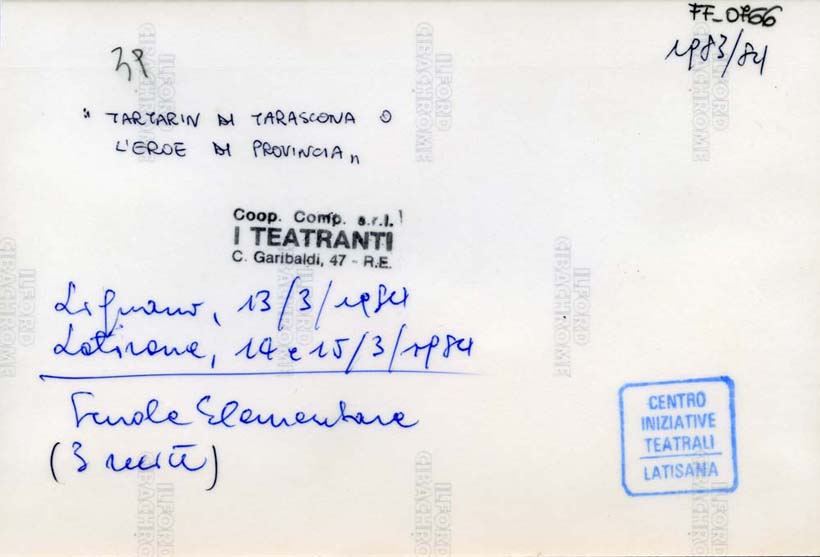 FF_0766
1983/84
39
"TARTARIN DI TARASCONA O
L'EROE DI PROVINCIA"
Coop. Comp. s.r.l.
I TEATRANTI
C. Garibaldi, 47 - R.E.
Lignano, 13/3/1984
Latisana, 14 e 15/3/1984
Scuole Elementare
(3 recite)
CENTRO
INIZIATIVE
TEATRALI
LATISANA
ILFORD
CIBACHROME
ILFORD
CIBACHROME
ILFORD
CIBACHROME
ILFORD
CIBACHROME
ILFORD
CIBACHROME
ILFORD
CIBACHROME
ILFORD
CIBACHROME
ILFORD
CIBACHROME